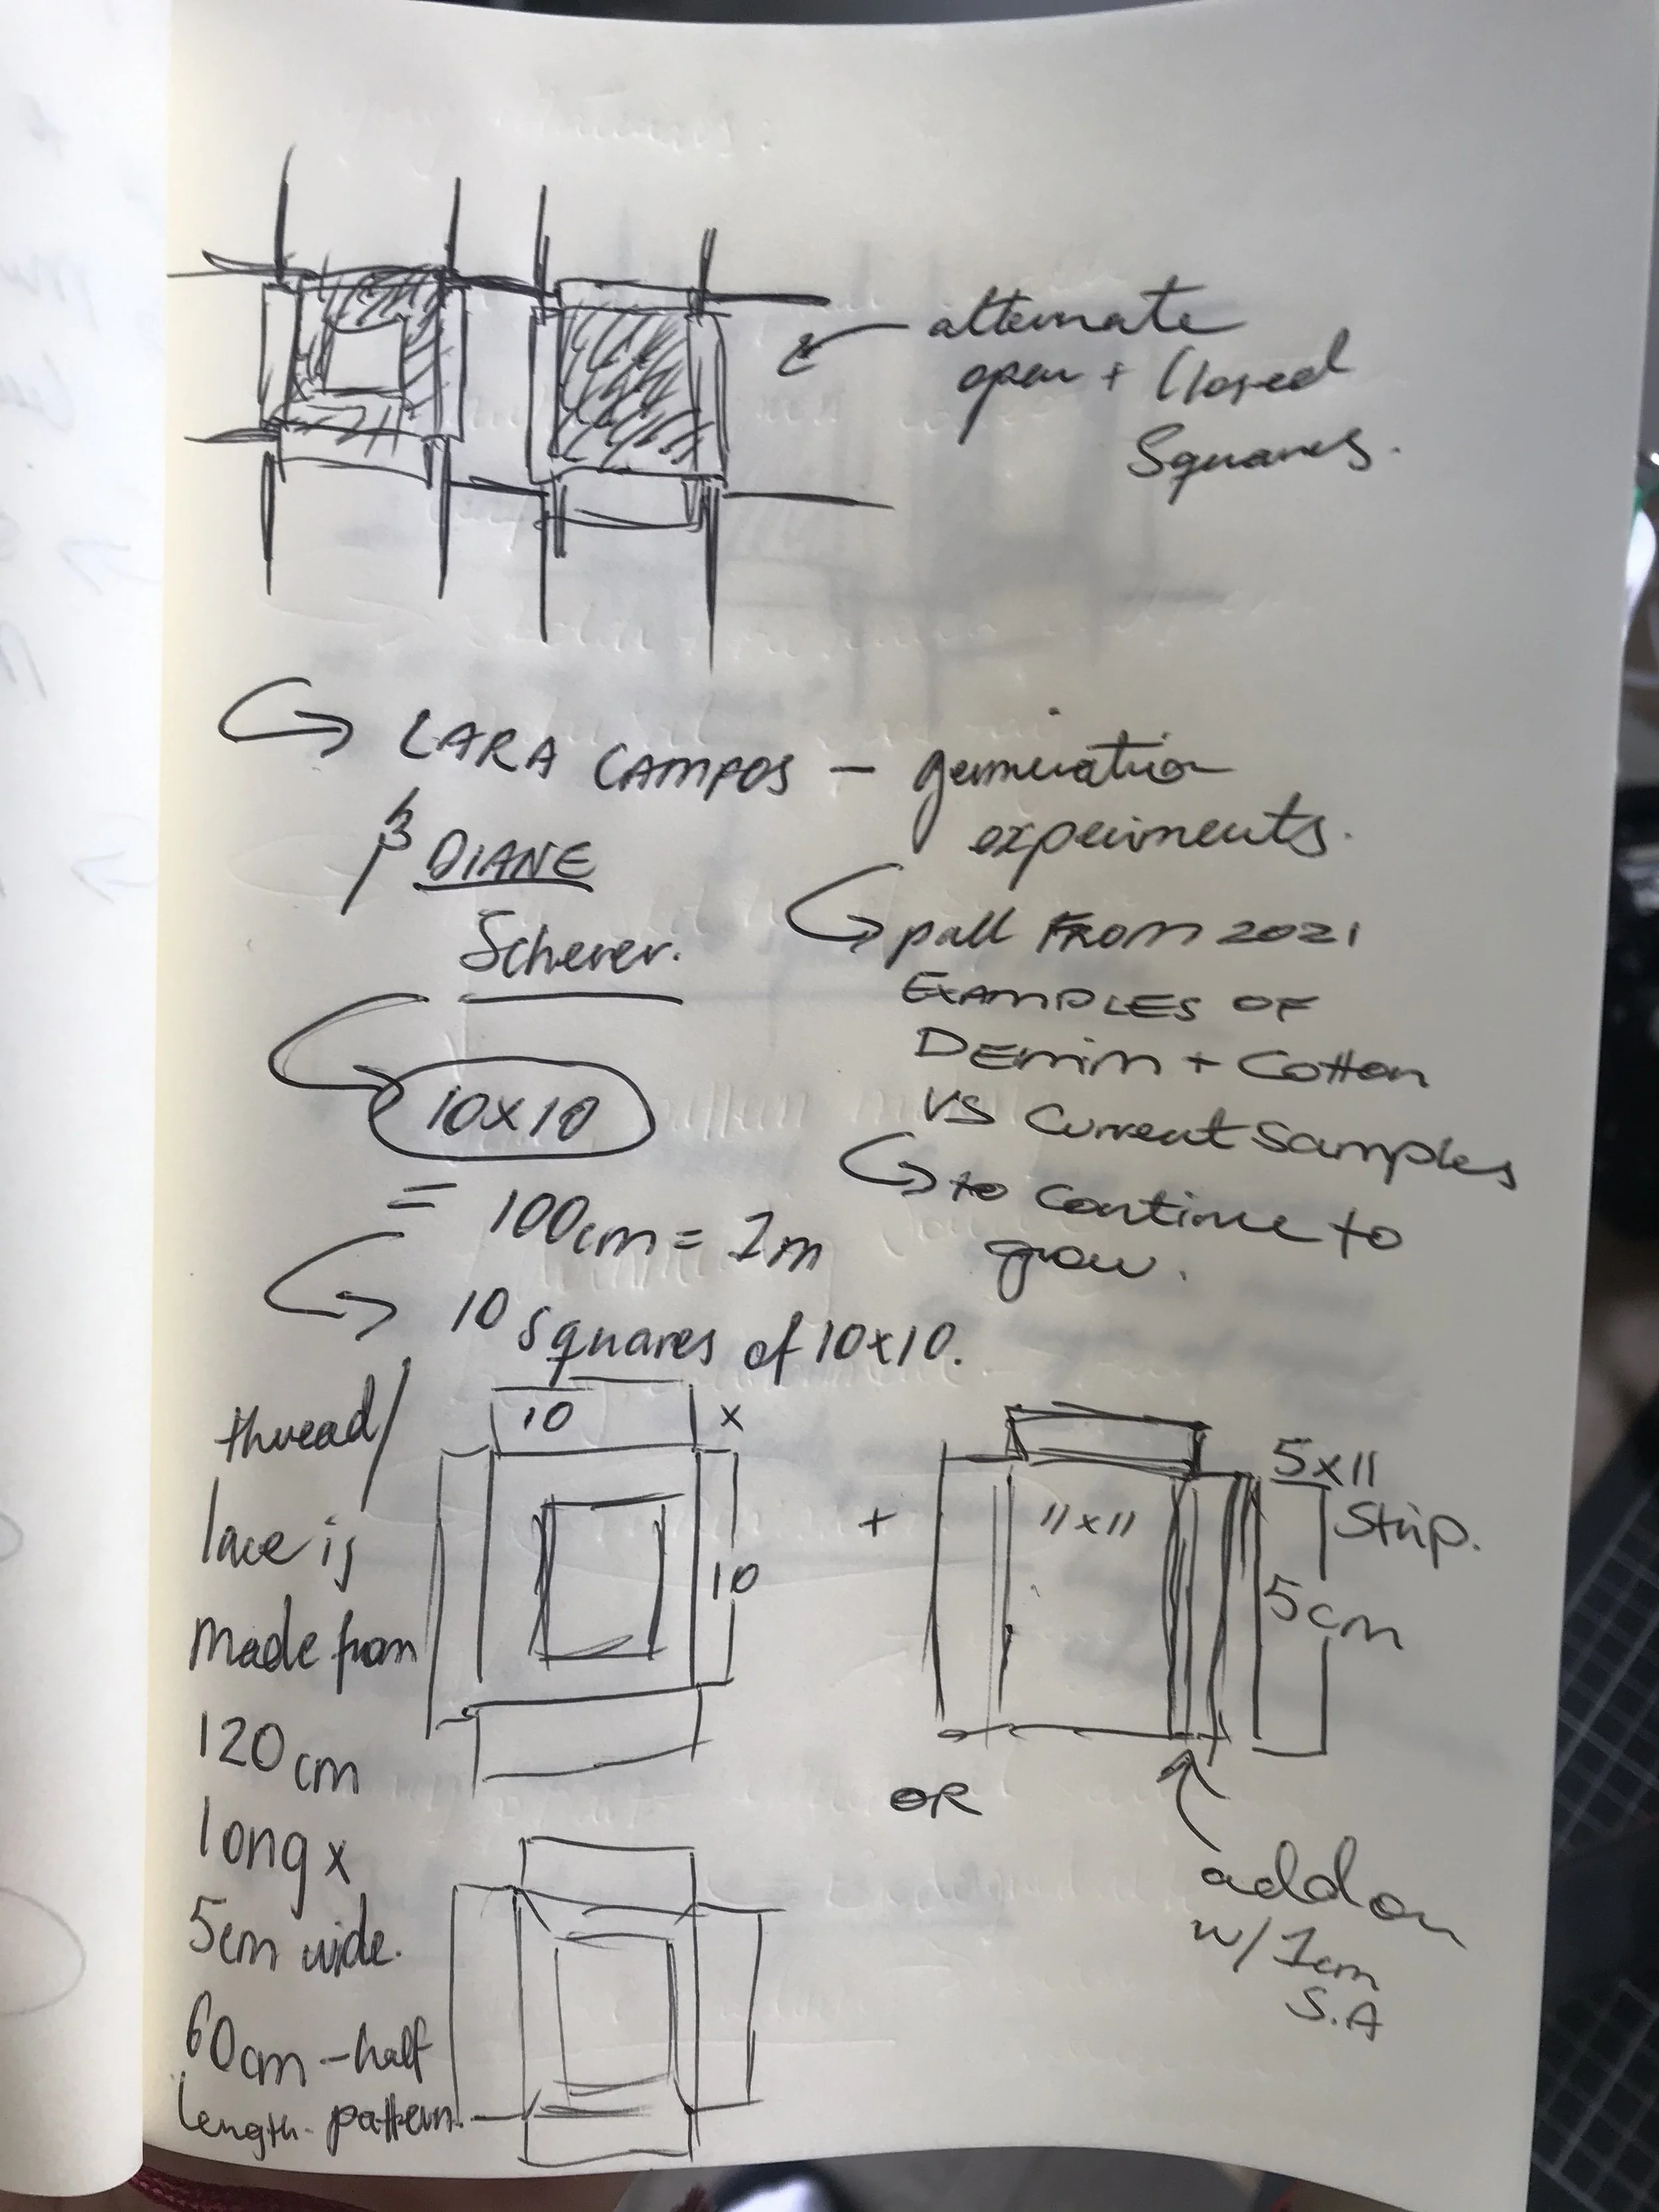 alternate
open + Closed
Squares.
LARA CAMPOS — germination
experiments.
& DIANE
Scherer.
pull FROM 2021
EXAMPLES OF
DEnim + Cotton
VS Current Samples
to continue to
grow.
10x10
= 100cm = 1m
10 squares of 10x10.
thread/
lace is
made from
120cm
long x
5cm wide.
60cm - half
length pattern.
10 x
10
+
11x11
5x11
Strip.
5cm
OR
add on
w/ 1cm
S.A